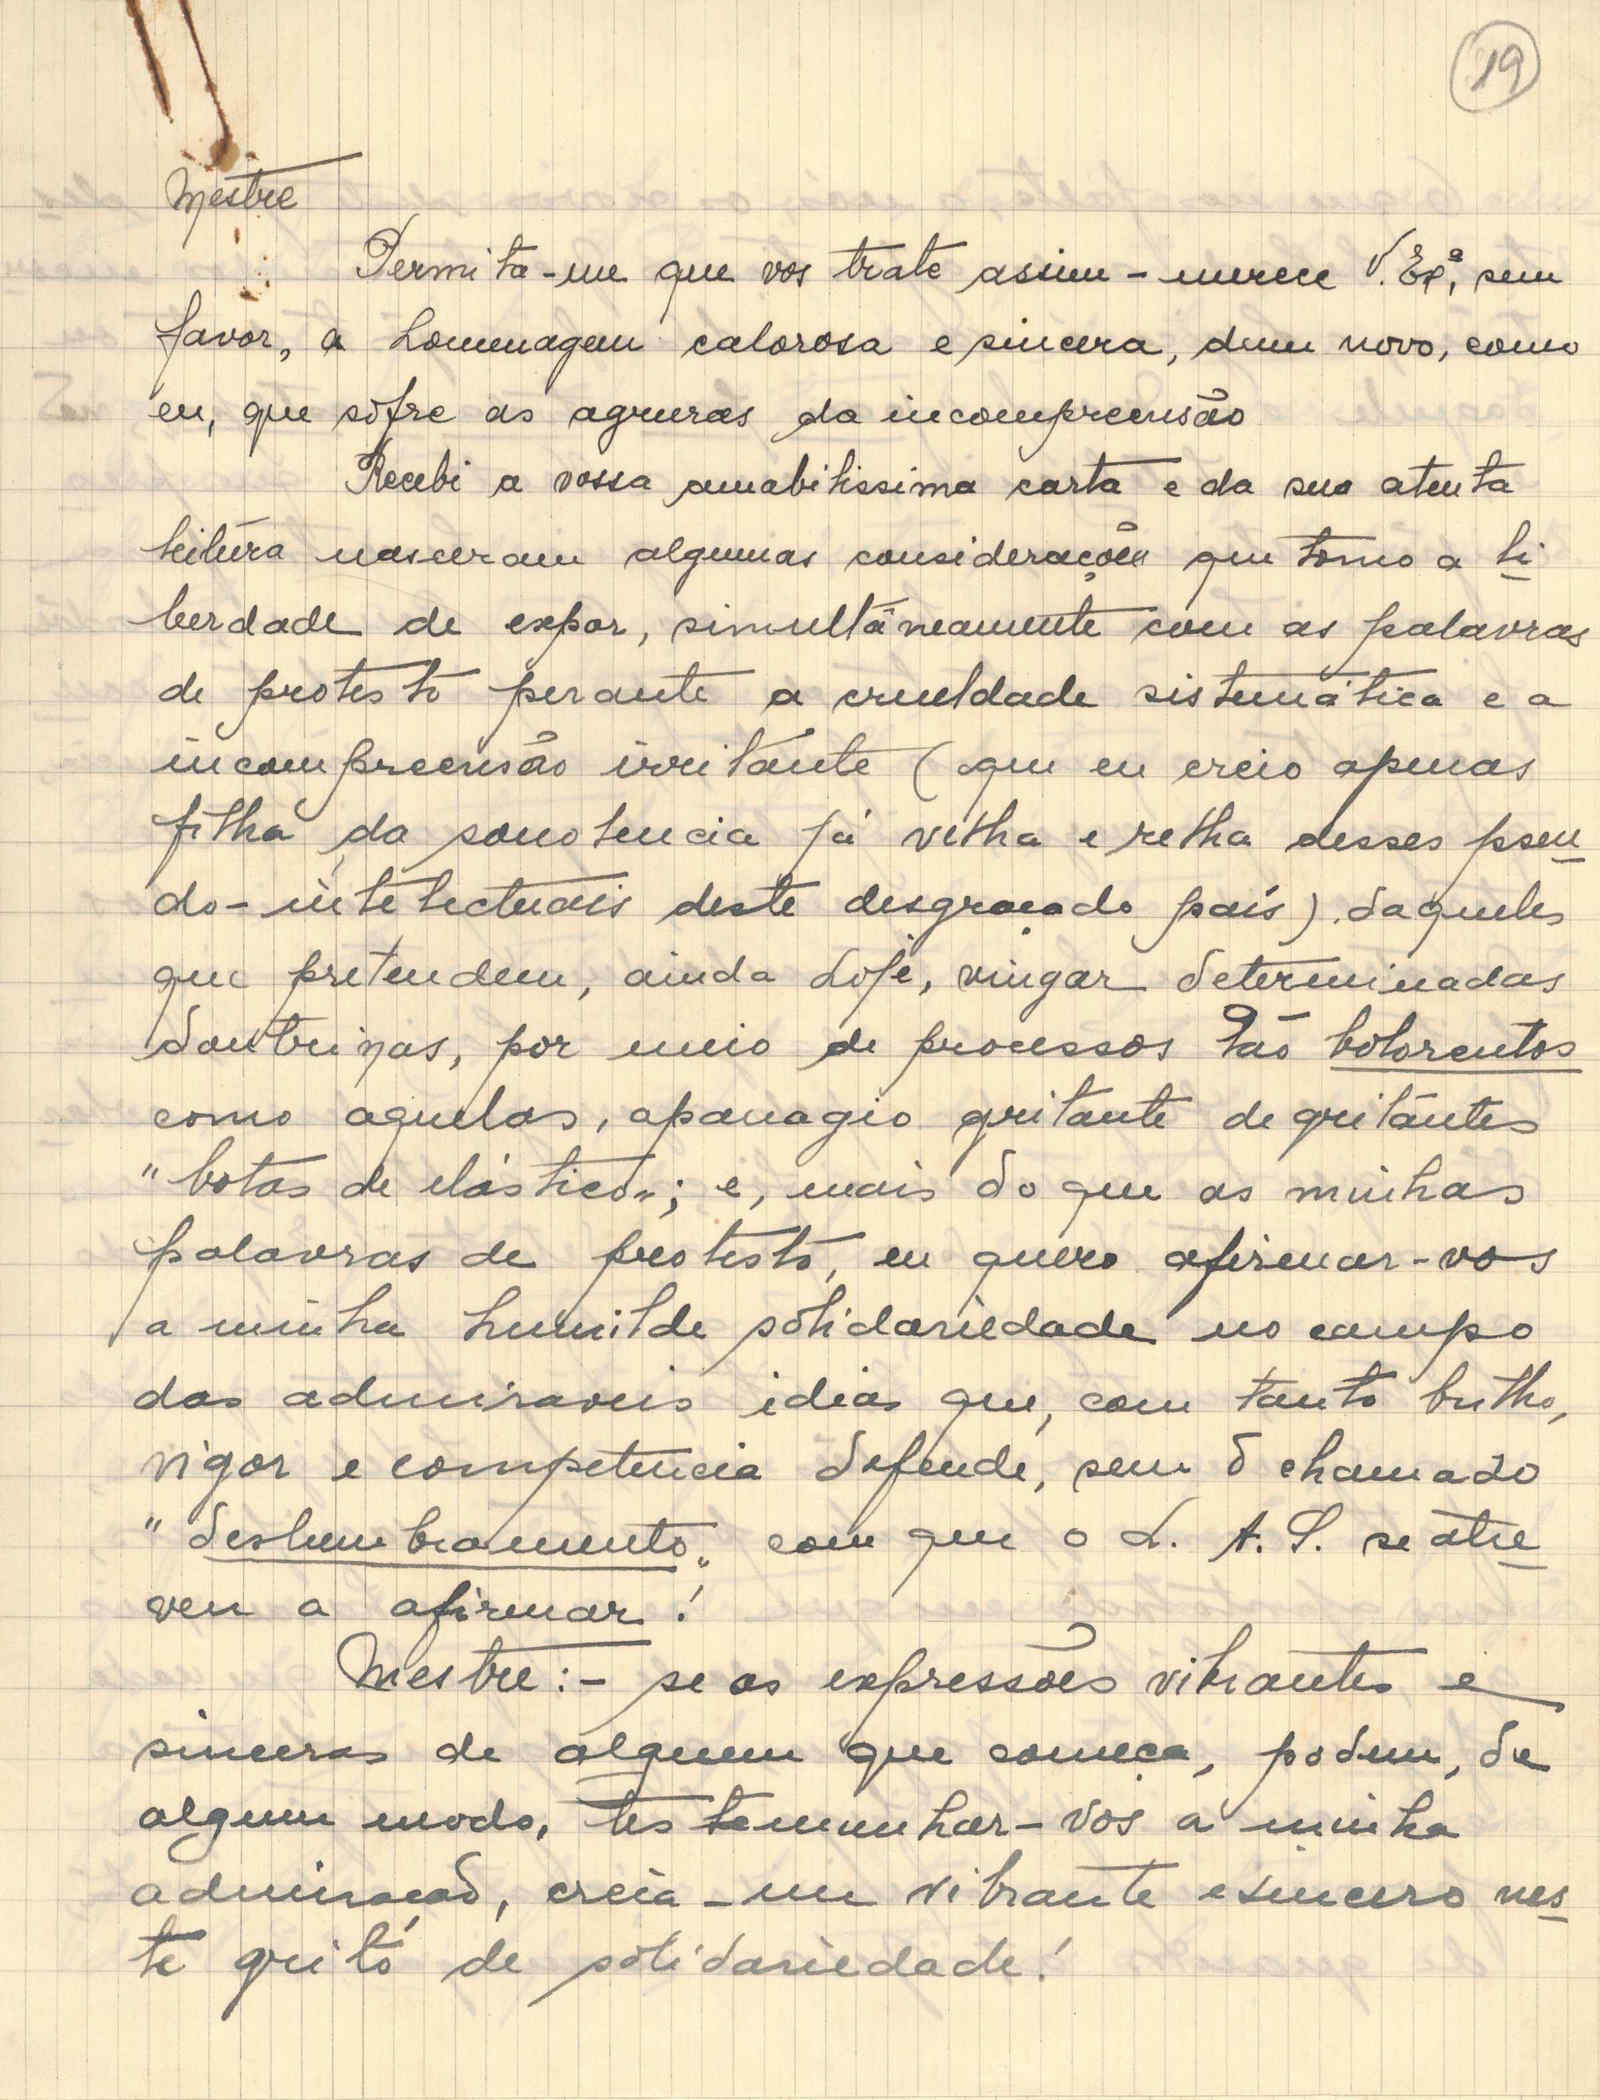 19
Mestre
Permita-me que vos trate assim - merece V. Exª, sem
favor, a homenagem calorosa e sincera, dum novo, como
eu, que sofre as agruras da incompreensão
Recebi a vossa amabilissima carta e da sua atenta
leitura nasceram algumas considerações que tomo a li
berdade de expor, simultâneamente com as palavras
de protesto perante a crueldade sistemática e a
incompreensão irritante (que eu creio apenas
filha da sonolencia já velha e relha desses pseu
do-intelectuais deste desgraçado país) daqueles
que pretendem, ainda hoje, vingar determinadas
doutrinas, por meio de processos tão bolorentos
como aquelas, apanagio gritante de gritantes
"botas de elástico"; e, mais do que as minhas
palavras de protesto, eu quero afirmar-vos
a minha humilde solidariedade no campo
das admiraveis idias que, com tanto brilho,
vigor e competencia defende, sem o chamado
"deslumbramento" com que o L. A. S. se atre
veu a afirmar!
Mestre: - se as expressões vibrantes e
sinceras de alguem que começa, podem, de
algum modo, testemunhar-vos a minha
admiração, creia-me vibrante e sincero nes
te grito de solidariedade!